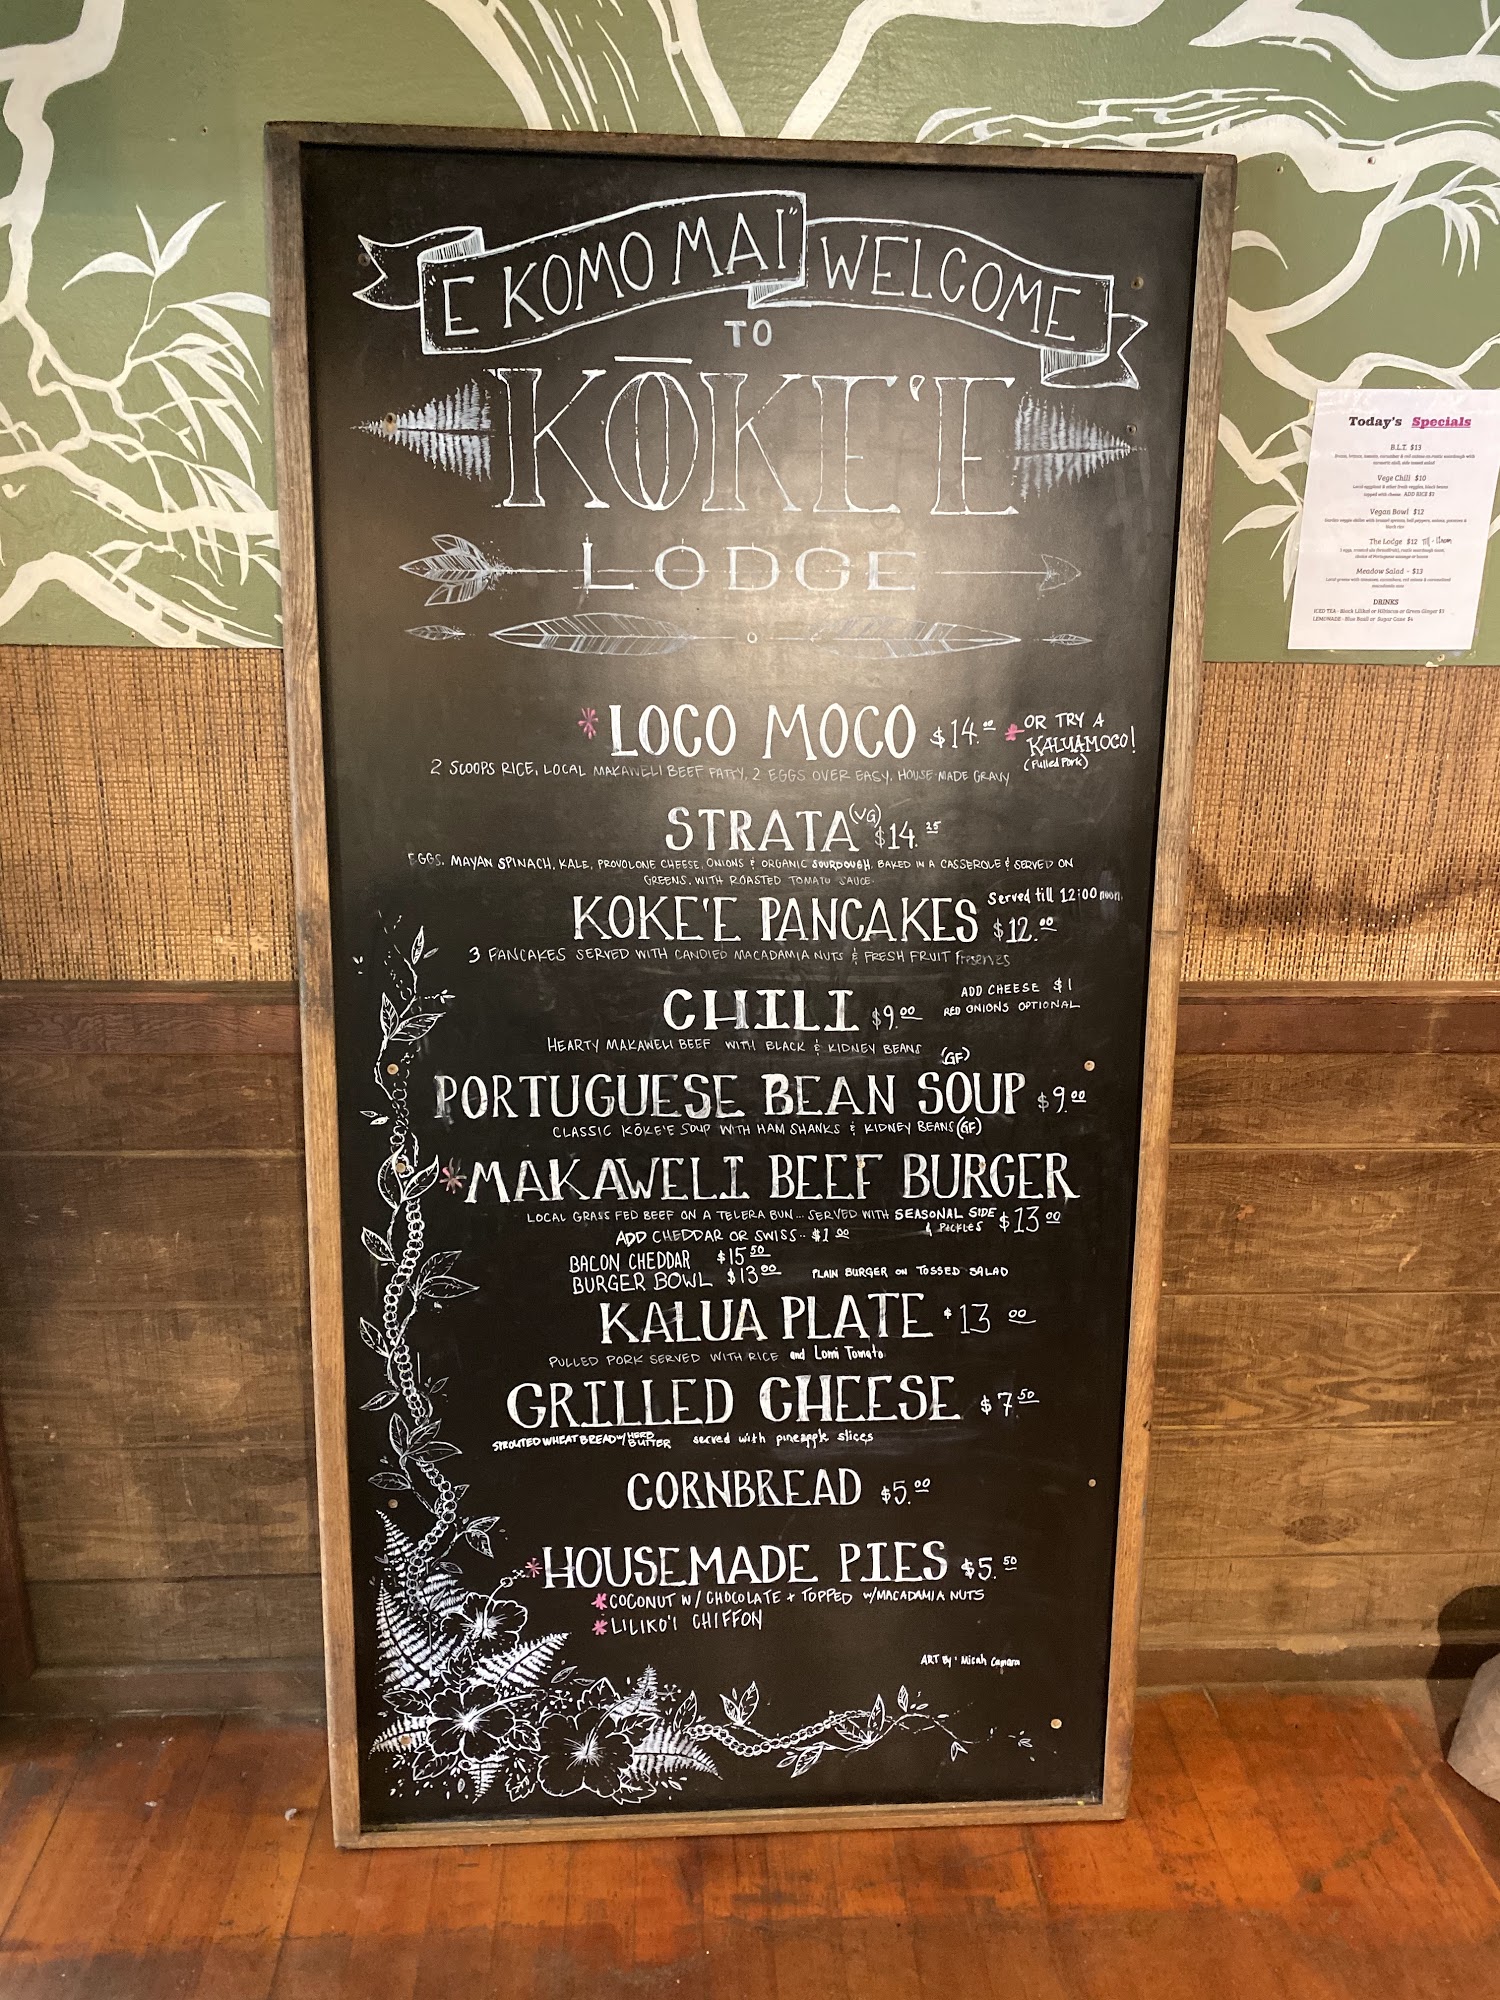 "E KOMO MAI" WELCOME
TO
KŌKE'E
LODGE
*LOCO MOCO $14.00 *OR TRY A
KALUAMOCO!
(Pulled Pork)
2 SCOOPS RICE, LOCAL MAKAWELI BEEF PATTY, 2 EGGS OVER EASY, HOUSE-MADE GRAVY
STRATA (VG) $14.25
EGGS, MAYAN SPINACH, KALE, PROVOLONE CHEESE, ONIONS & ORGANIC SOURDOUGH, BAKED IN A CASSEROLE & SERVED ON
GREENS, WITH ROASTED TOMATO SAUCE
Served till 12:00 noon
KOKE'E PANCAKES $12.00
3 PANCAKES SERVED WITH CANDIED MACADAMIA NUTS & FRESH FRUIT Preserves
CHILI $9.00
ADD CHEESE $1
RED ONIONS OPTIONAL
HEARTY MAKAWELI BEEF WITH BLACK & KIDNEY BEANS (GF)
PORTUGUESE BEAN SOUP $9.00
CLASSIC KŌKE'E SOUP WITH HAM SHANKS & KIDNEY BEANS (GF)
*MAKAWELI BEEF BURGER
LOCAL GRASS FED BEEF ON A TELERA BUN... SERVED WITH SEASONAL SIDE
& PICKLES $13.00
ADD CHEDDAR OR SWISS.. $1.00
BACON CHEDDAR $15.50
BURGER BOWL $13.00 PLAIN BURGER ON TOSSED SALAD
KALUA PLATE $13 00
PULLED PORK SERVED WITH RICE and Lomi Tomato
GRILLED CHEESE $7.50
SPROUTED WHEAT BREAD W/ HERB BUTTER served with pineapple slices
CORNBREAD $5.00
*HOUSEMADE PIES $5.50
*COCONUT W/ CHOCOLATE + TOPPED W/MACADAMIA NUTS
*LILIKO'I CHIFFON
ART By: Micah Camara
Today's Specials
B.L.T. $13
Vege Chili $10
topped with cheese ADD RICE $2
Vegan Bowl $12
The Lodge $12 Till - 12noon
Meadow Salad - $13
DRINKS
ICED TEA - Black Lilikoi or Hibiscus or Green Ginger $3
LEMONADE - Blue Basil or Sugar Cane $4